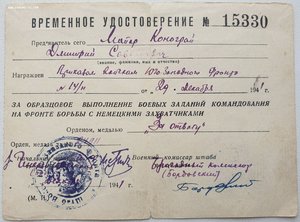 ВРЕМЕННОЕ УДОСТОВЕРЕНИЕ № 15330
Предъявитель сего Майор Конограй
Дмитрий
(звание, фамилия, имя и отчество)
Награжден Приказом войскам Юго Западного Фронта
№ 14/н от „29“ декабря 194
ЗА ОБРАЗЦОВОЕ ВЫПОЛНЕНИЕ БОЕВЫХ ЗАДАНИЙ КОМАНДОВАНИЯ
НА ФРОНТЕ БОРЬБЫ С НЕМЕЦКИМИ ЗАХВАТЧИКАМИ
Орденом, медалью „За отвагу“
Орден, медаль №
Военный комиссар штаба
комиссар
(М. П.) 194